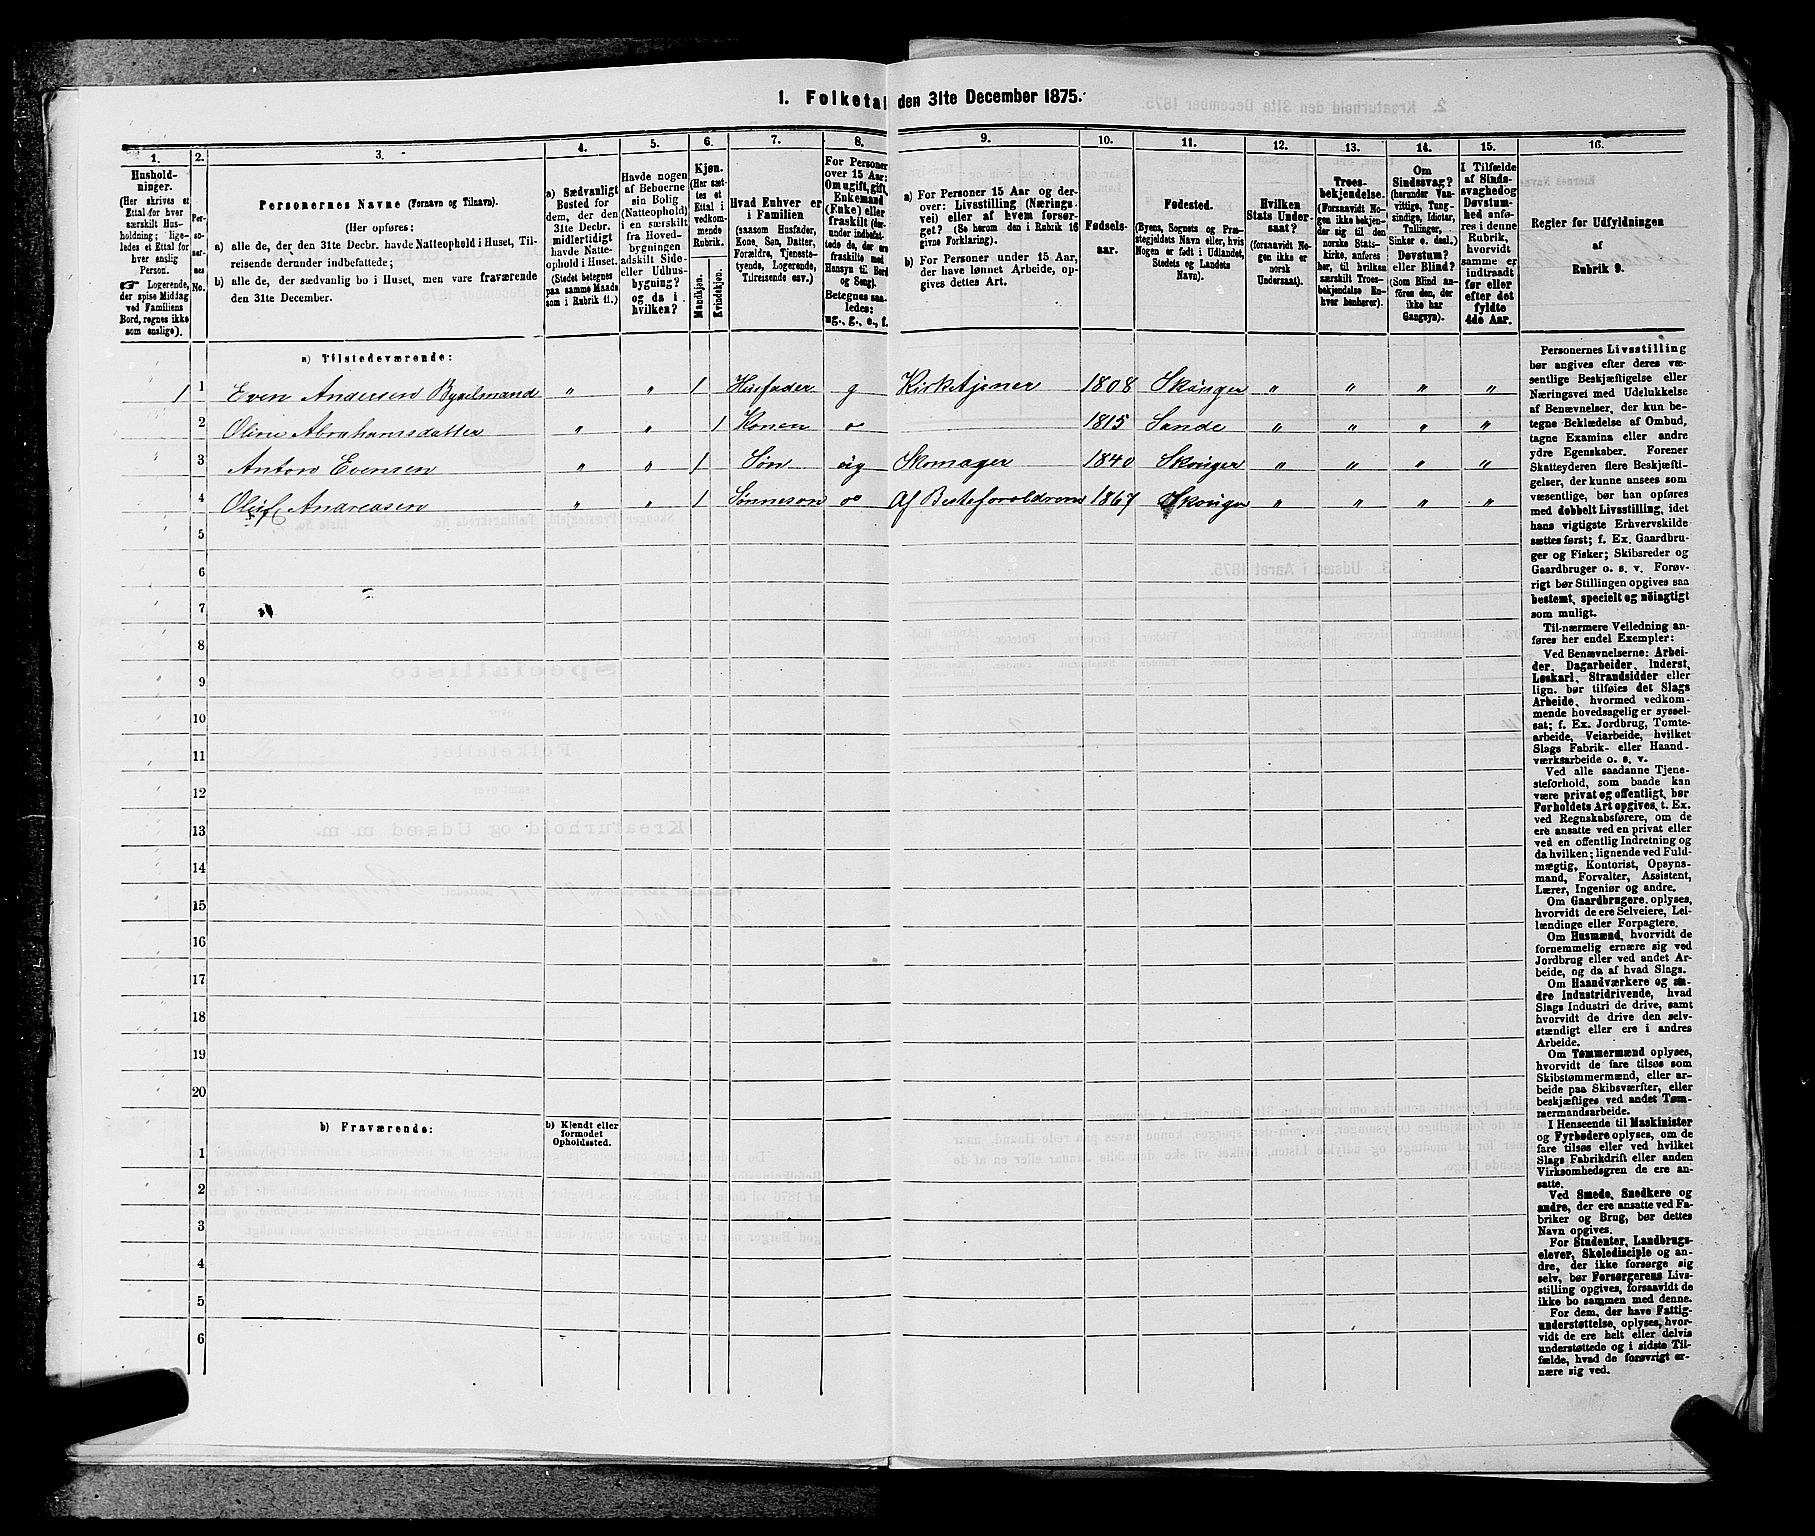 1. Folketal den 31te December 1875.
1.
Hushold-
ninger.
(Her skrives et
Ettal for hver
særskilt Hus-
holdning; lige-
ledes et Ettal for
hver enslig
Person.
☞ Logerende,
der spise Middag
ved Familiens
Bord, regnes ikke
som enslige).
2.
Per-
so-
ner-
nes
No.
3.
Personernes Navne (Fornavn og Tilnavn).
(Her opføres:
a) alle de, der den 31te Decbr. havde Natteophold i Huset, Til-
reisende derunder indbefattede;
b) alle de, der sædvanlig bo i Huset, men vare fraværende
den 31te December.
4.
a) Sædvanligt
Bosted for
dem, der den
31te Decbr.
midlertidigt
havde Natte-
ophold i Huset.
(Stedet betegnes
paa samme Maade
som i Rubrik 11.)
5.
Havde nogen
af Beboerne
sin Bolig
(Natteophold)
i en særskilt
fra Hoved-
bygningen
adskilt Side-
eller Udhus-
bygning?
og da i
hvilken?
6.
Kjøn.
(Her sæt-
tes et
Ettal i
vedkom-
mende
Rubrik.
Mandkjøn.
Kvindekjøn.
7.
Hvad Enhver er
i Familien
(saasom Husfader,
Kone, Søn, Datter,
Forældre, Tjeneste-
tyende, Logerende,
Tilreisende osv.)
8.
For Personer
over 15 Aar:
Om ugift, gift,
Enkemand
(Enke) eller
fraskilt (der-
under indbefat-
tede de, der ere
fraskilte med
Hensyn til Bord
og Seng).
Betegnes saa-
ledes:
ug., g., e., f.
9.
a) For Personer 15 Aar og der-
over: Livsstilling (Nærings-
vei) eller af hvem forsør-
get? (Se herom den i Rubrik 16
givne Forklaring).
b) For Personer under 15 Aar,
der have lønnet Arbeide, op-
gives dettes Art.
10.
Fødsels-
aar.
11.
Fødested.
(Byens, Sognets og Præ-
stegjeldets Navn eller, hvis
Nogen er født i Udlandet,
Stedets og Landets
Navn).
12.
Hvilken
Stats Under-
saat?
(forsaavidt No-
gen ikke er
norsk
Undersaat).
13.
Troes-
bekjendelse.
(Forsaavidt No-
gen ikke bekjen-
der sig til den
norske Stats-
kirke, anføres
her, til hvilken
særskilt Troes-
bekjendelse En-
hver henhører).
14.
Om
Sindssvag?
(herunder Van-
vittige, Tung-
sindige, Idioter,
Tullinger,
Sinker o. desl.)
Døvstum?
eller Blind?
(Som Blind an-
føres den, der
ikke har
Gangsyn).
15.
I Tilfælde
af Sinds-
svaghed og
Døvstum-
hed anfø-
res i denne
Rubrik,
hvorvidt
samme er
indtraadt
før eller
efter det
fyldte
4de Aar.
16.
Regler for Udfyldningen
af
Rubrik 9.
a) Tilstedeværende:
1 1 Even Andersen Bygelmand „ „ 1 Husfader g Kirketjener 1808 Skouger „ „ „ „
2 Oline Abrahamsdatter „ „ 1 Konen o 1815 Sande „ „ „ „
3 Anton Evensen „ „ 1 Søn uig Skomager 1840 Skouger „ „ „ „
4 Oluf Andreasen „ „ 1 Sønneson oo Af Besteforeldrene 1867 Skouger „ „ „ „
5
6
7
8
9
10
11
12
13
14
15
16
17
18
19
20
b) Fraværende:
b) Kjendt eller
formodet
Opholdssted.
1
2
3
4
5
6
Personernes Livsstilling
bør angives efter deres væ-
sentlige Beskjæftigelse eller
Næringsvei med Udelukkelse
af Benævnelser, der kun be-
tegne Beklædelse af Ombud,
tagne Examina eller andre
ydre Egenskaber. Forener
Skatteyderen flere Beskjæfti-
gelser, der kunne ansees som
væsentlige, bør han opføres
med dobbelt Livsstilling, idet
hans vigtigste Erhvervskilde
sættes først; f. Ex. Gaardbru-
ger og Fisker; Skibsreder og
Gaardbruger o. s. v. Forøv-
rigt bør Stillingen opgives saa
bestemt, specielt og nøiagtigt
som muligt.
Til nærmere Veiledning an-
føres her endel Exempler:
Ved Benævnelserne: Arbei-
der, Dagarbeider, Inderst,
Løskarl, Strandsidder eller
lign. bør tilføies det Slags
Arbeide, hvormed vedkom-
mende hovedsagelig er syssel-
sat; f. Ex. Jordbrug, Tomte-
arbeide, Veiarbeide, hvilket
Slags Fabrik- eller Haand-
værksarbeide o. s. v.
Ved alle saadanne Tjene-
steforhold, som baade kan
være privat og offentligt, bør
Forholdets Art opgives, t. Ex.
ved Regnskabsførere, om de
ere ansatte ved en privat eller
ved en offentlig Indretning og
da hvilken; lignende ved Fuld-
mægtig, Kontorist, Opsyns-
mand, Forvalter, Assistent,
Lærer, Ingeniør og andre.
Om Gaardbrugere oplyses,
hvorvidt de ere Selveiere, Lei-
lændinge eller Forpagtere.
Om Husmænd, hvorvidt de
fornemmelig ernære sig ved
Jordbrug eller ved andet Ar-
beide, og da af hvad Slags.
Om Haandværkere og an-
dre Industridrivende, hvad
Slags Industri de drive, samt
hvorvidt de drive den selv-
stændigt eller ere i andres
Arbeide.
Om Tømmermænd oplyses,
hvorvidt de fare tilsøs som
Skibstømmermænd, eller ar-
beide paa Skibsværfter, eller
beskjæftiges ved andet Tøm-
mermandsarbeide.
I Henseende til Maskinister
og Fyrbødere oplyses, om de
fare tilsøs eller ved hvilket
Slags Fabrikdrift eller anden
Virksomhedsgren de ere an-
satte.
Ved Smede, Snedkere og
andre, der ere ansatte ved Fa-
briker og Brug, bør dettes
Navn opgives.
For Studenter, Landbrugs-
elever, Skoledisciple og an-
dre, der ikke forsørge sig
selv, bør Forsørgerens Livs-
stilling opgives, forsaavidt de
ikke bo sammen med denne.
For dem, der have Fattig-
understøttelse, oplyses, hvor-
vidt de ere helt eller delvis
understøttede og i sidste Til-
fælde, hvad de forøvrigt er-
nære sig ved.